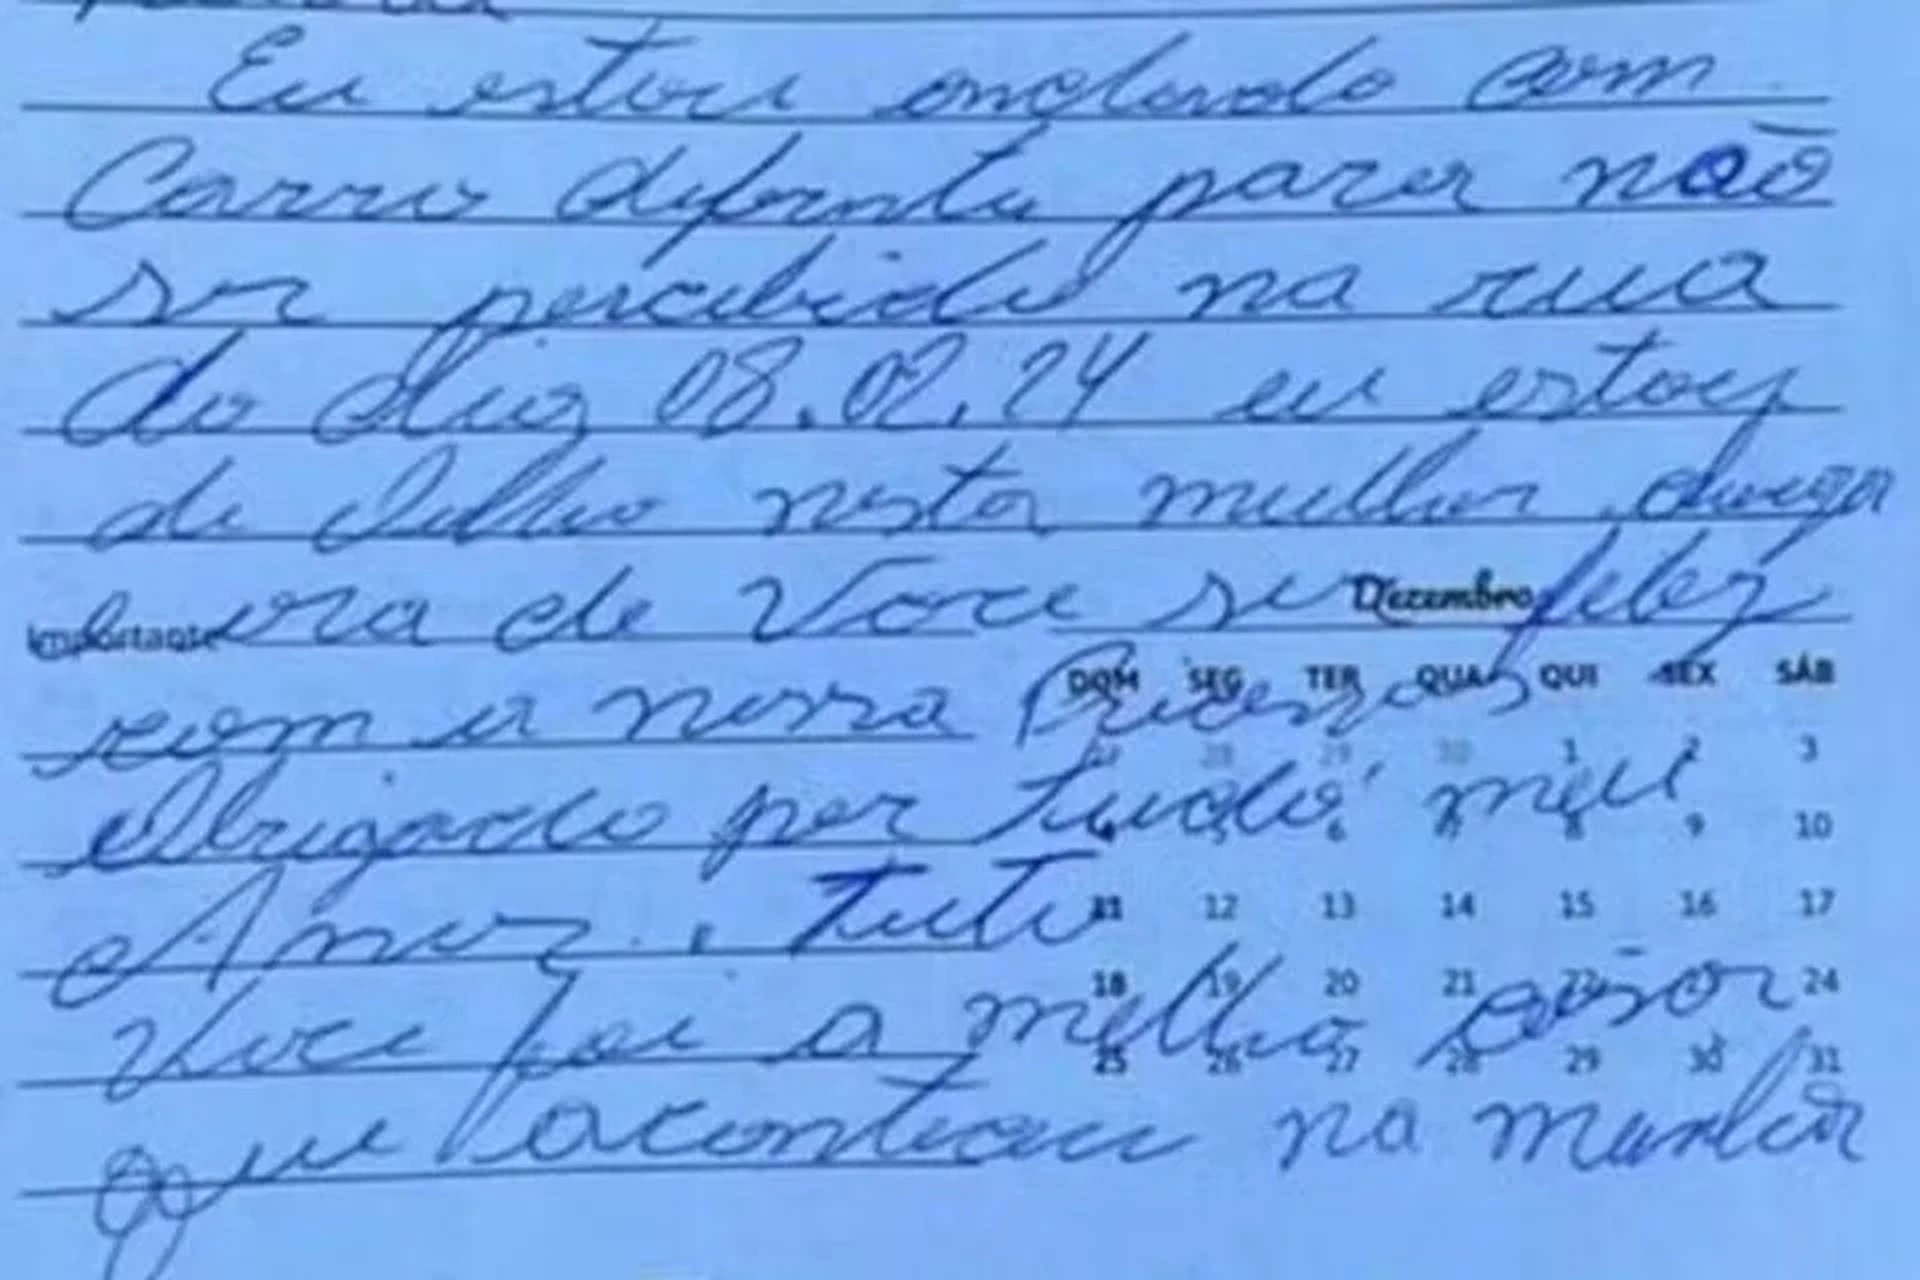 Eu estou andando com
Carro diferente para não
ser percebido na rua
do dia 08.02.24 eu estou
de olho nesta mulher chega
ora de Voce se feliz
Importante
Dezembro
com a nossa Princesas
DOM SEG TER QUA QUI SEX SÁB
28 29 30 1 2 3
Obrigado por tudo meu
6 7 8 9 10
Amor. Tuto
11 12 13 14 15 16 17
Voce foi a melho coisa
18 19 20 21 22 24
25 26 27 28 29 30 31
que aconteceu na minha